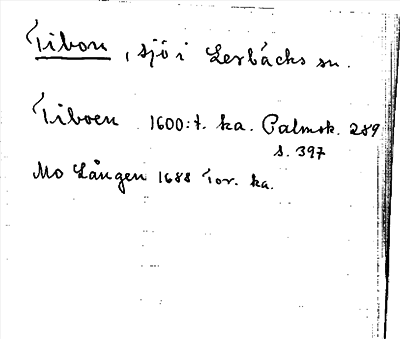 Tibon, sjö i Lerbäcks sn.
Tiboen 1600:t. ka. Palmsk. 289
s. 397
Mo Lången 1688 Tor. ka.